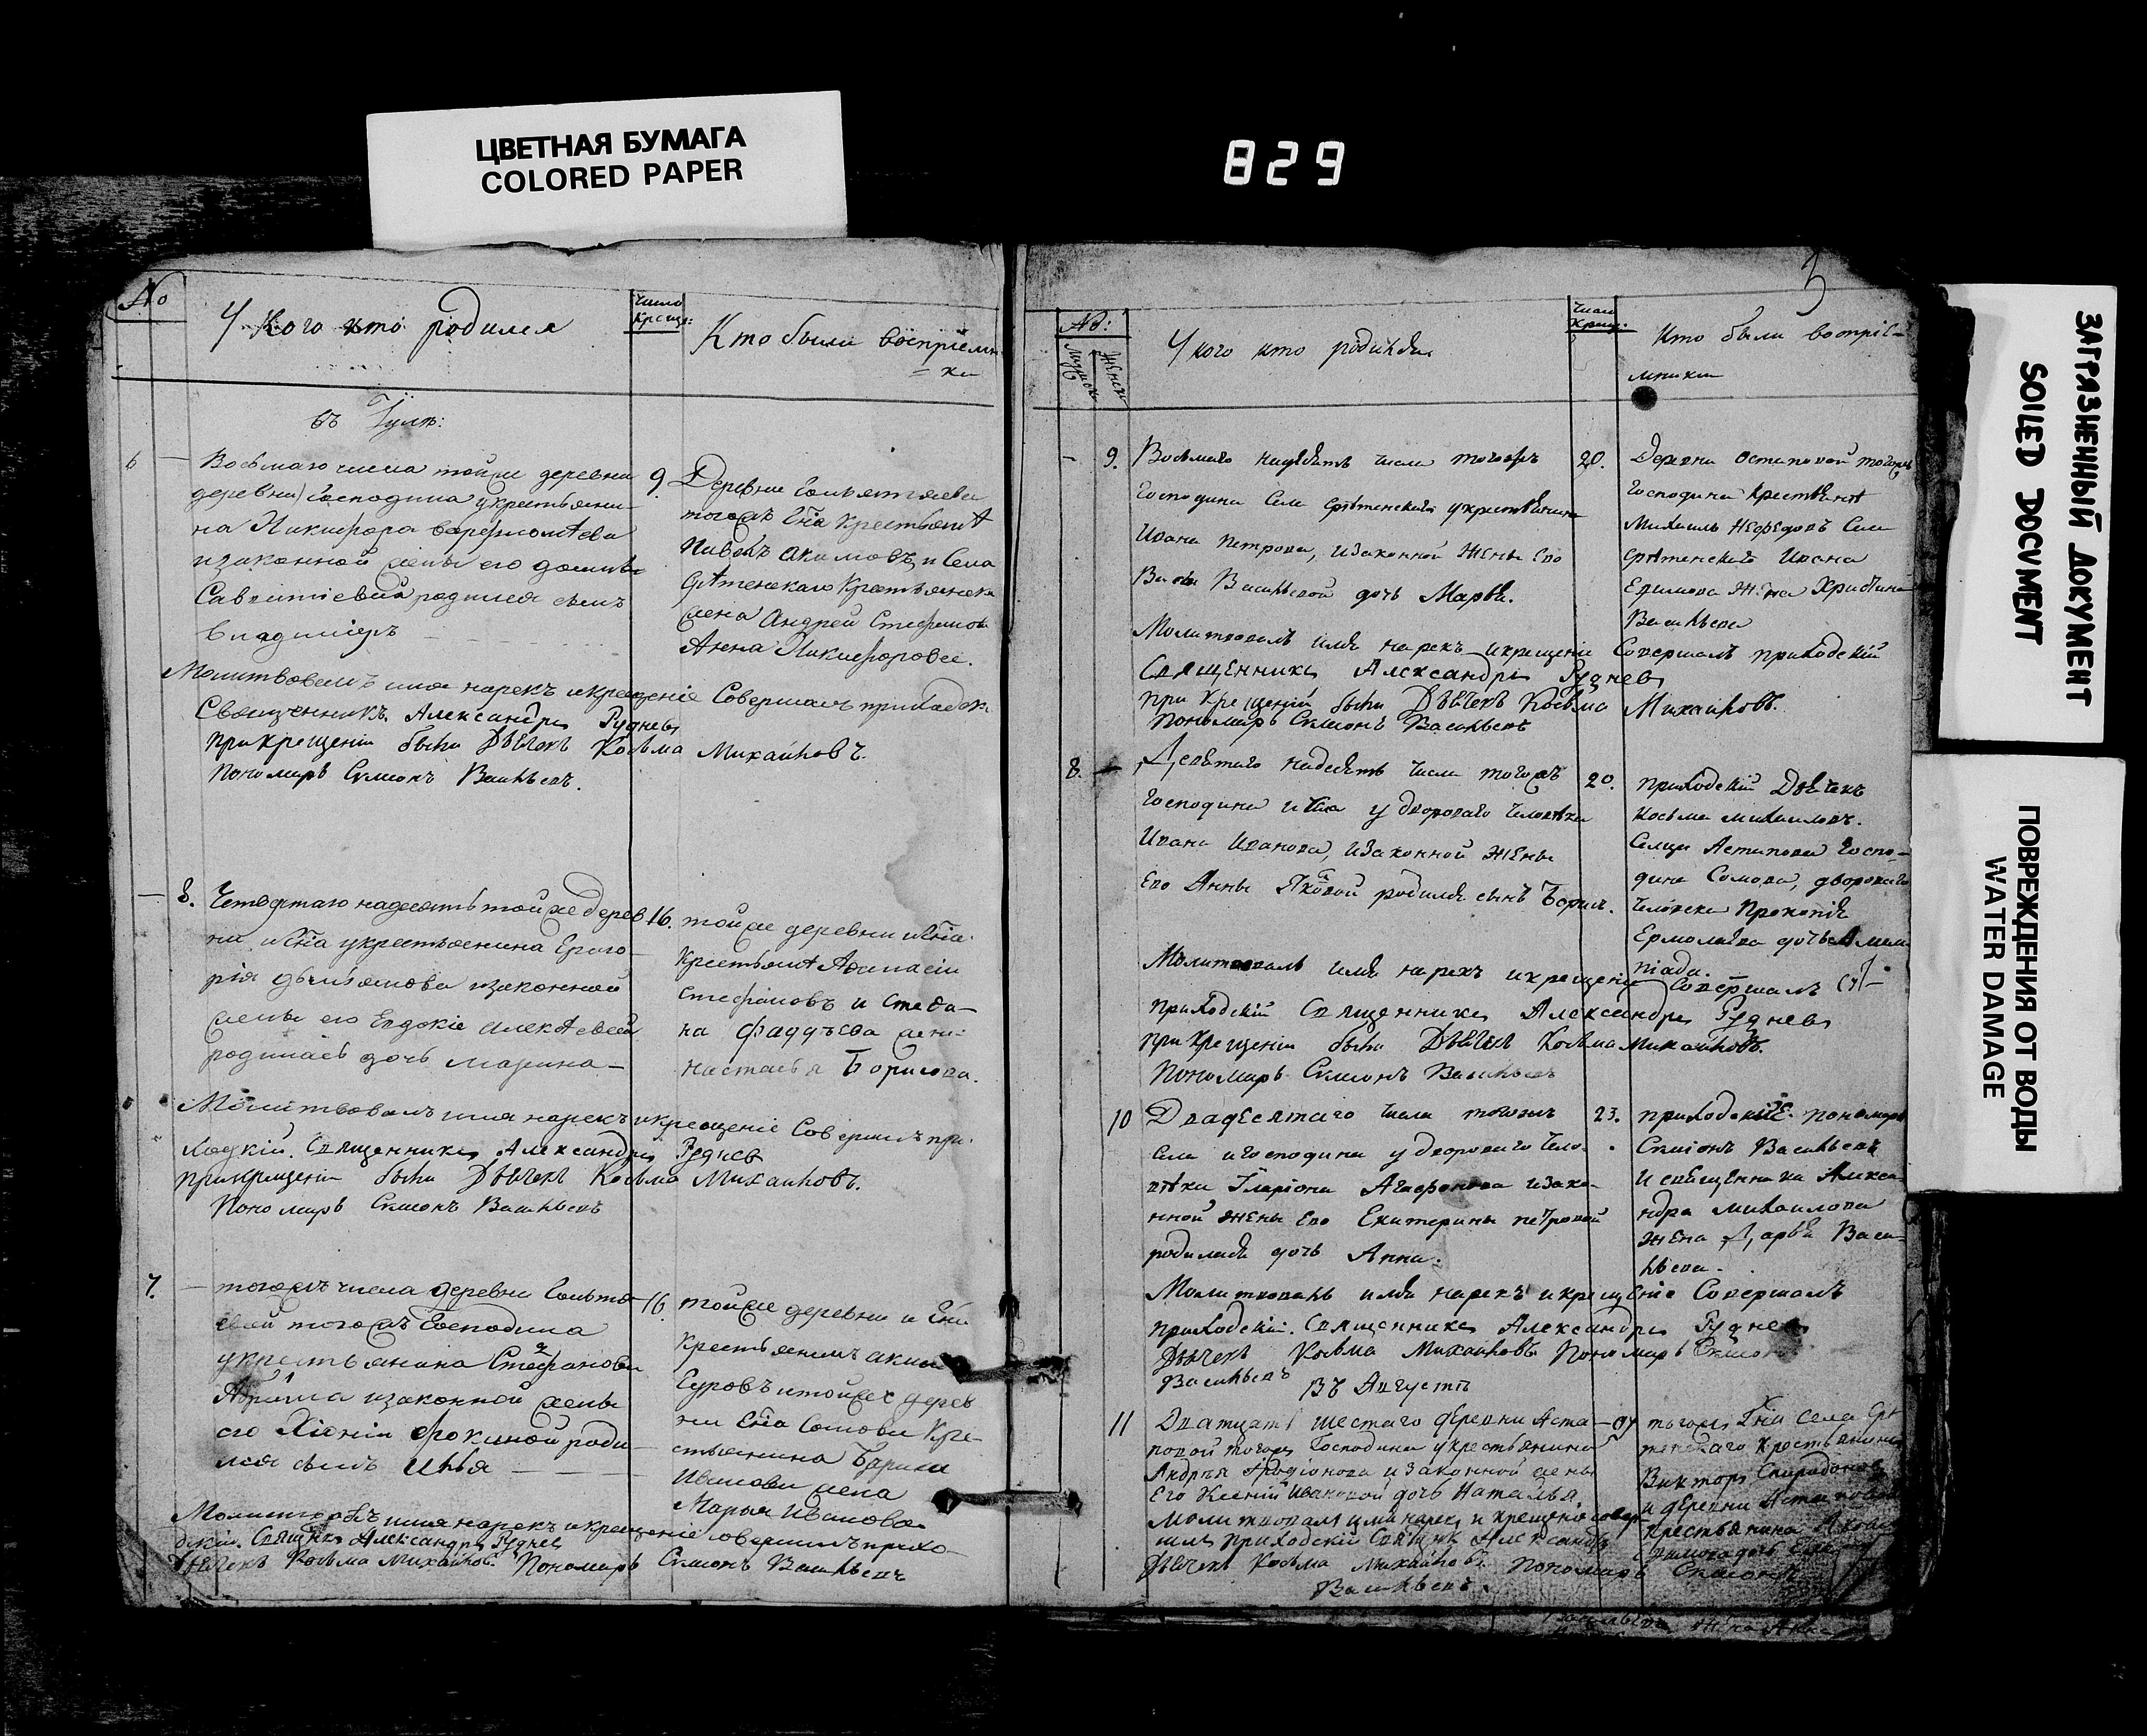 ЦВЕТНАЯ БУМАГА
COLORED PAPER
829
ЗАГРЯЗНЕННЫЙ ДОКУМЕНТ
SOILED DOCUMENT
ПОВРЕЖДЕНИЯ ОТ ВОДЫ
WATER DAMAGE
No
У кого кто родился
Число Крещ:
Кто были воспріемни
= ки
въ Іулѣ:
6 — Восьмаго числа тойже деревни
деревни) Господина укрестьяни-
на Никифора варфоломѣева
изаконной жены его
родился сынъ
Владимиръ
9. Деревни
тогожъ Гна Крестьянѣ
Павелъ акимовъ, и Села
Срѣтенскаго Крестьянска
жена Андрея Стефанова
Анна Никифорова.
Молитвовалъ имя нарекъ икрещеніе Совершалъ приходск.
Священникъ Александръ Рудневъ
прикрещеніи были Дьячекъ Козьма Михайловъ.
Пономарь Симіонъ Васильевъ.
— 8. Четвертаго надесять тойже дерев
ни иГна укрестьянина Григо-
рія изаконной
жены его Евдокіи алексѣевой
родилась дочь марина —
16. тойже деревни иГна
Крестьянѣ Афанасіи
Стефановъ и Степа-
на фаддѣева жена
настасья Борисова.
Молитвовалъ имя нарекъ икрещеніе Совершалъ при-
ходскій. Священникъ Александръ Рудневъ
прикрещеніи были Дьячекъ Козьма Михайловъ.
Пономарь Симіонъ Васильевъ
7. — тогожъ числа деревни
тогожъ Господина
укрестьянина Стефанова
Абрама изаконной жены
его Ксеніи фокиной роди-
лся сынъ Илья
16. тойже деревни и Гна
Крестьянинъ
и тойже дерев
ни Гна Сомова Кре-
стьянина
Иванова жена
Марья Иванова
Молитвовалъ имя нарекъ икрещеніе совершилъ прихо-
дскій. Священ. Александръ Рудневъ
Дьячекъ Козьма Михайловъ. Пономарь Симіонъ Васильевъ
3
No:
Мужск Женск
У кого кто родился
Число Крещ:
Кто были воспріе-
мники
— 9. Восьмаго надесять числа тогожъ
Господина Села срѣтенскаго укрестьянина
Ивана Петрова, изаконной Жены Его
Васильевой дочь Марѳа.
20. Деревни Остаповой тогожъ
Господина Крестьянѣ
Михаилъ Нефедовъ Села
срѣтенскаго Ивана
Ефимова Жена Христина
Васильева
Молитвовалъ имя нарекъ икрещеніе Совершалъ приходскій
Священникъ Александръ Рудневъ
при Крещеніи были Дьячекъ Козьма Михайловъ.
Пономарь Симіонъ Васильевъ
8. — Девятаго надесять числа тогожъ
Господина иСела у двороваго человѣка
Ивана Иванова, изаконной Жены
Его Анны родился сынъ Борисъ.
20. приходскій Дьячекъ
Козьма михаиловъ.
Сельца Астапова Госпо-
дина Сомова, двороваго
человека Прокопія
Ермолаева дочь Алим
піада.
Молитвовалъ имя нарекъ икрещеніе Совершалъ
приходскій Священникъ Александръ Рудневъ
прикрещеніи были Дьячекъ Козьма Михайловъ.
Пономарь Симіонъ Васильевъ
10 Двадесятаго числа тогожъ
Села иГосподина у двороваго чело-
вѣка Іларіона Агафонова изако-
нной жены Его Екатерины петровой
родилась дочь Анна.
23. приходскій пономарь
Симіонъ Васильевъ
И священника Алекса-
ндра михаилова
жена Дарья Васи-
льева.
Молитвовалъ имя нарекъ икрещеніе Совершалъ
приходскій. Священникъ Александръ Рудневъ
Дьячекъ Козьма Михайловъ Пономарь Симіонъ
Васильевъ
Въ Августѣ
11 Дватцать шестаго деревни Аста-
повой тогожъ Господина укрестьянина
Андрея Родіонова изаконной жены
Его Ксеніи Ивановой дочь Наталья
тогожъ Гна Села Срѣ
тенскаго Крестьянинъ
Викторъ Спиридоновъ
и деревни Астаповой
Крестьянина
Молитвовалъ имя нарекъ и крещеніе совер-
шилъ Приходскій Священ. Александръ
Дьячекъ Козьма Михайловъ Пономарь Симіонъ
Васильевъ.